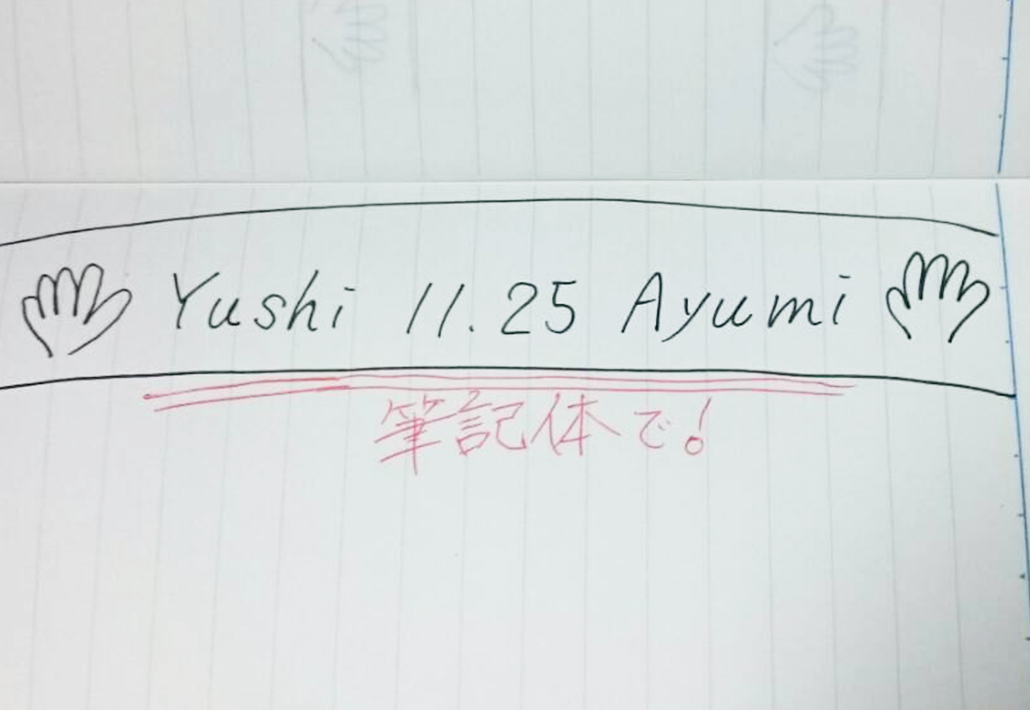 Yushi 11.25 Ayumi
筆記体で!